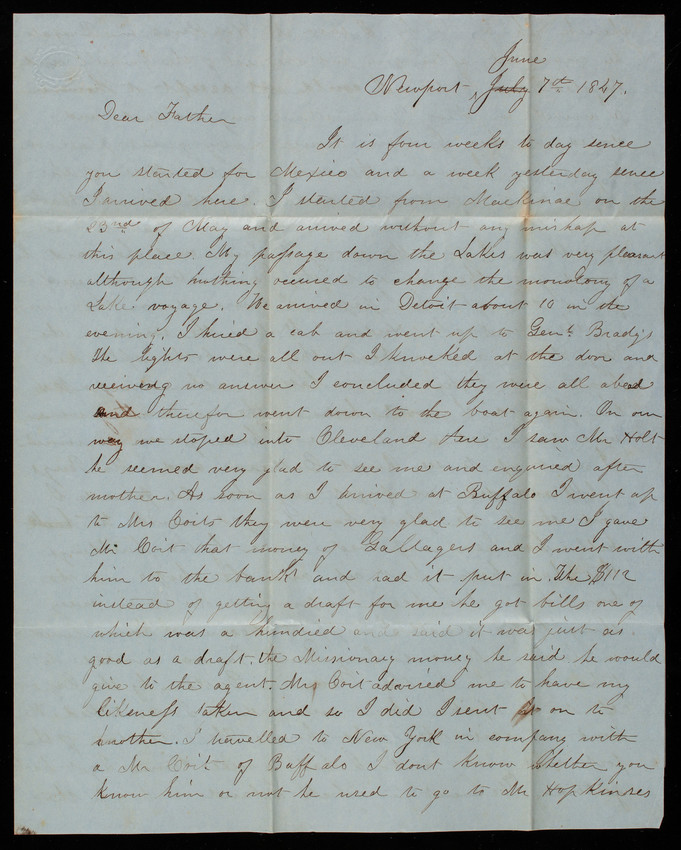 June
Newport ^ July 7th 1847.
Dear Father
It is four weeks to day since
you started for Mexico and a week yesterday since
I arrived here. I started from Mackinac on the
23nd of May and arrived without any mishap at
this place. My passage down the Lakes was very pleasant
although nothing occured to change the monotony of a
Lake voyage. We arrived in Detroit about 10 in the
evening. I hired a cab and went up to Genl. Bradys
the lights were all out I knocked at the door and
receiveing no answer I concluded they were all abed
and therefor went down to the boat again. On our
way we stoped into Cleveland here I saw Mr Holt
he seemed very glad to see me and enquired after
mother. As soon as I arrived at Buffalo I went up
to Mrs Coits they were very glad to see me I gave
Mr Coit that money of Gallagers and I went with
him to the bank and had it put in. The $112
instead of getting a draft for me he got bills one of
which was a hundred and said it was just as
good as a draft. the Missionary money he said he would
give to the agent. Mrs Coit advised me to have my
likeness taken and so I did I sent it on to
mother. I travelled to New York in company with
a Mr Coit of Buffalo I dont know whether you
know him or not he used to go to Mr Hopkinses